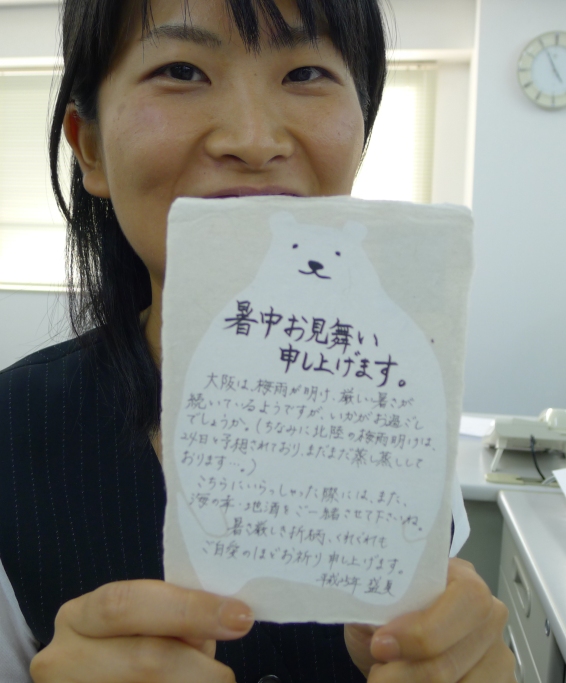 暑中お見舞い
申し上げます。
大阪は、梅雨が明け、厳しい暑さが
続いているようですが、いかがお過ごし
でしょうか。(ちなみに北陸の梅雨明けは、
24日と予想されており、まだまだ蒸し蒸しして
おります…。)
こちらにいらっしゃった際には、また、
海の幸・地酒をご一緒させて下さいね。
暑さ厳しき折柄、くれぐれも
ご自愛のほどお祈り申し上げます。
平成25年 盛夏